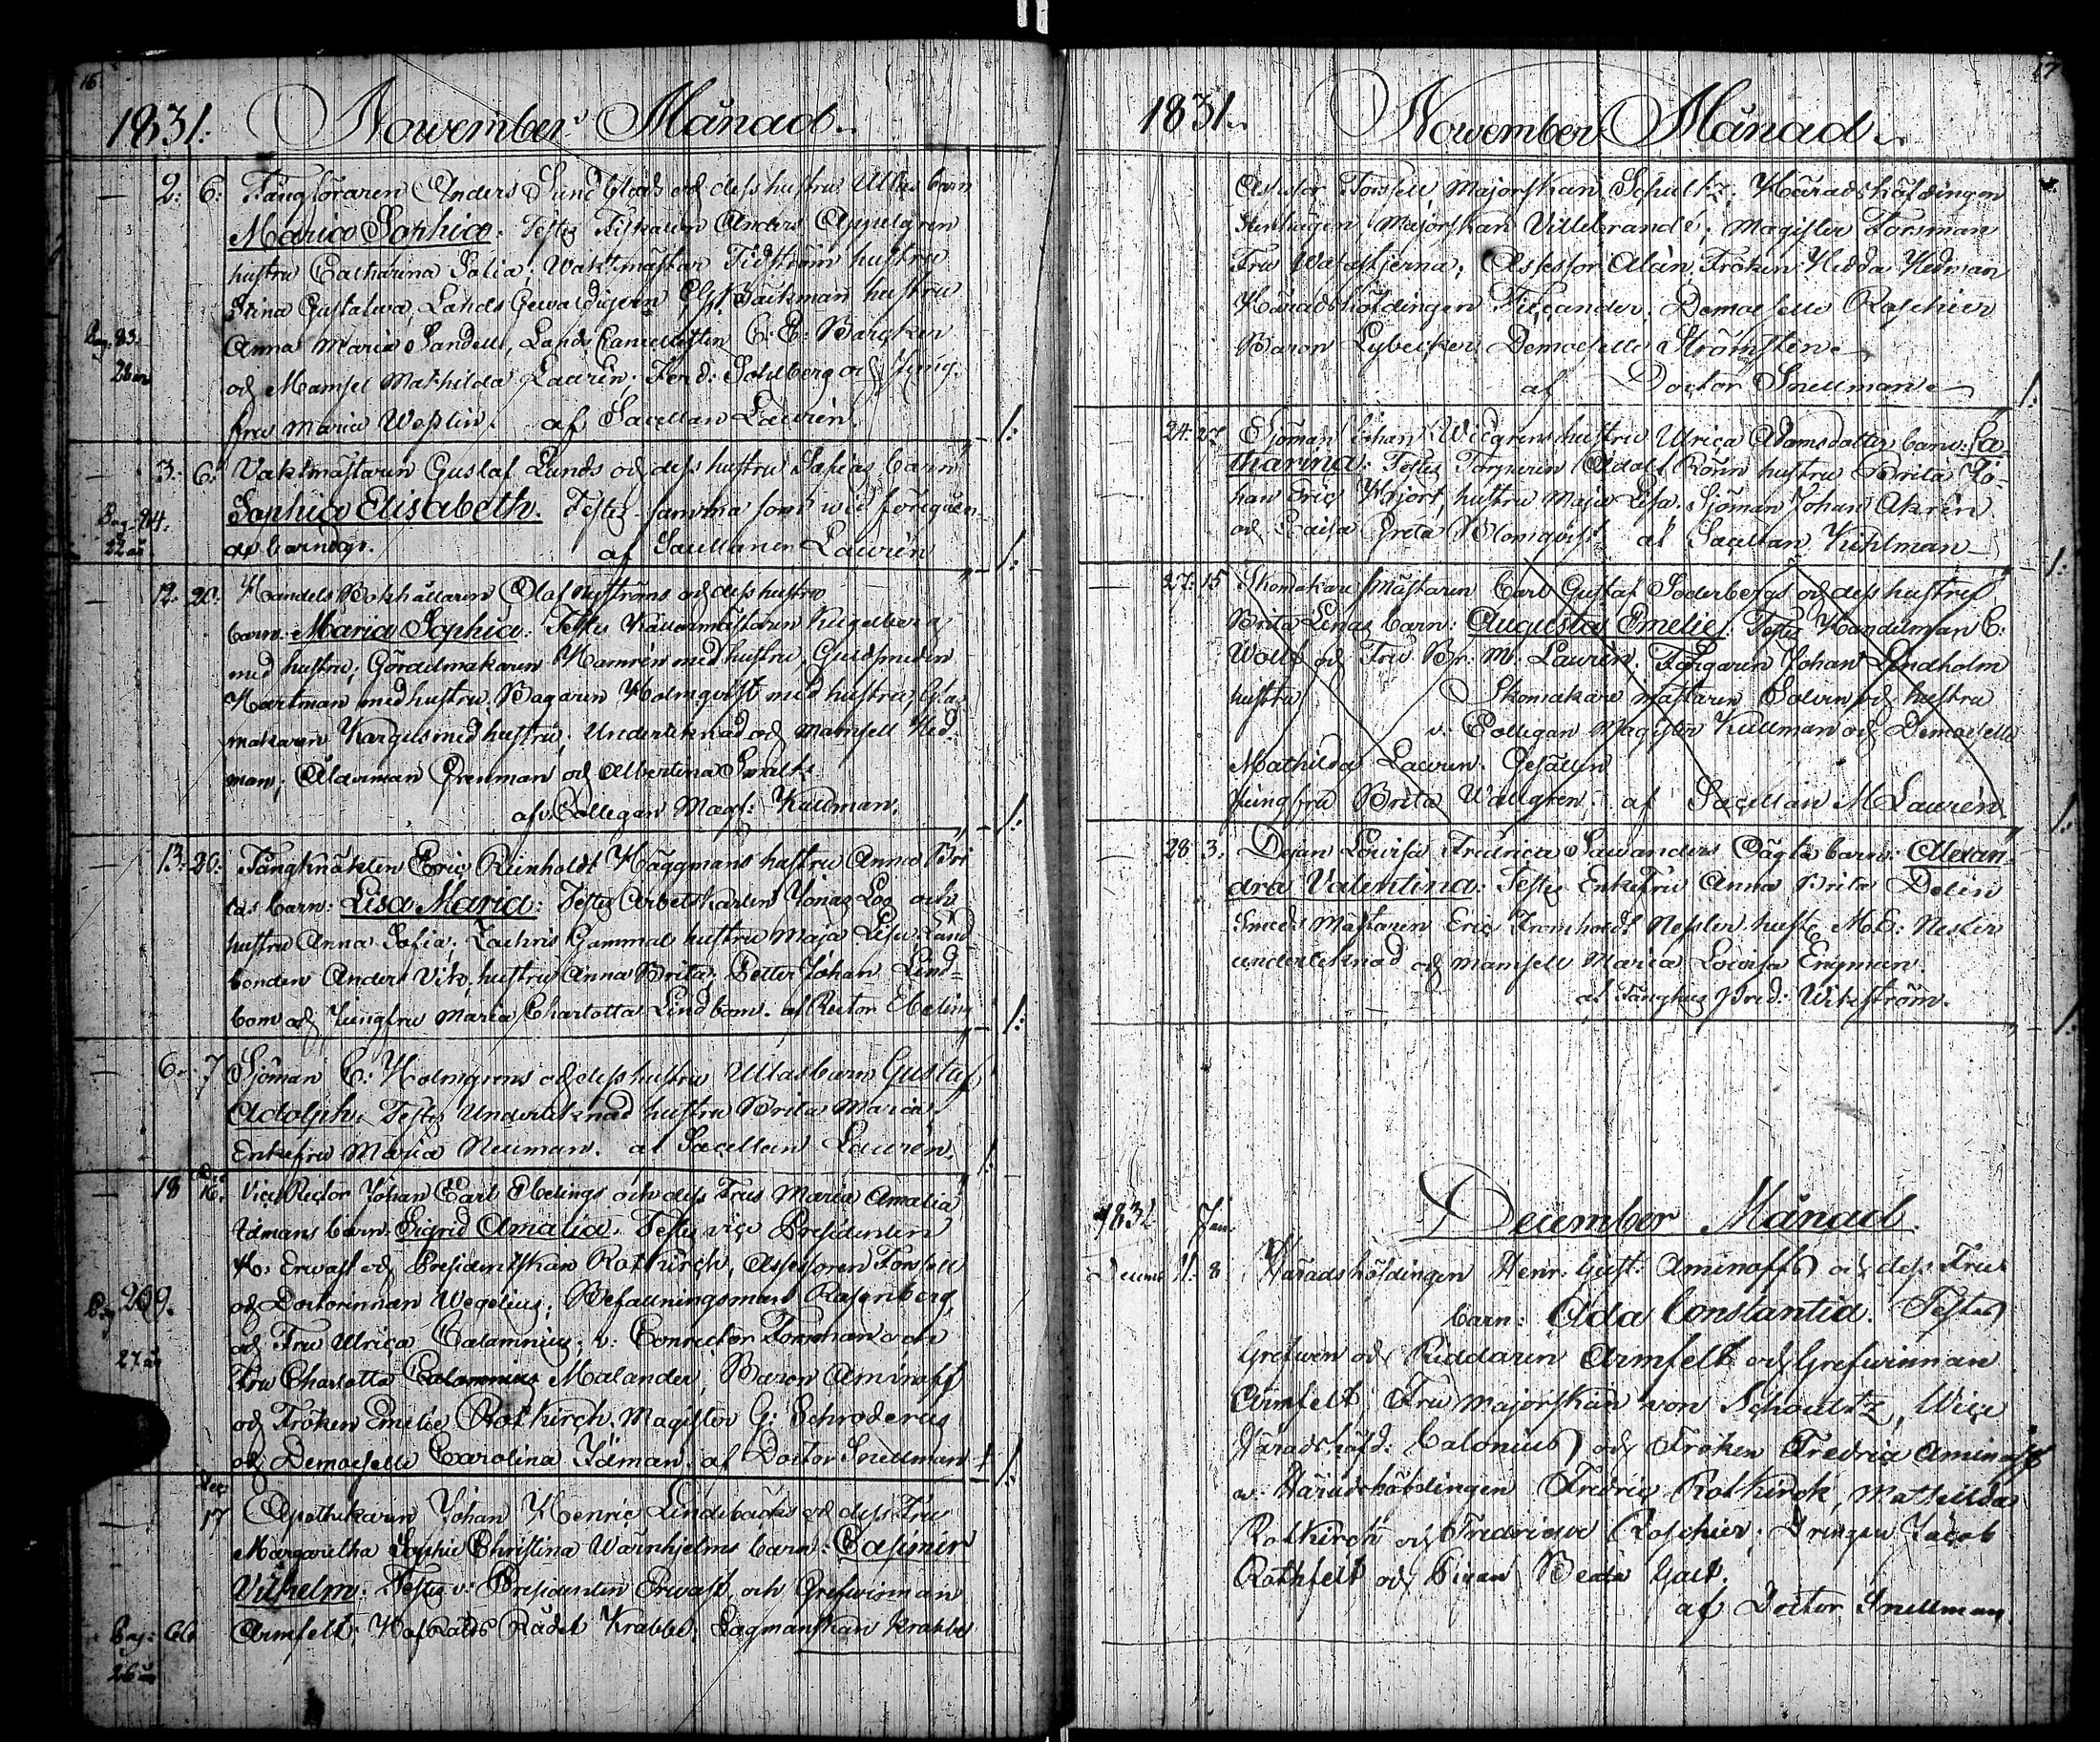 16.
1831. November Månad.
2. 6. Fångföraren Anders Sundblads och dess hustru Ullas barn
Maria Sophia. Testes Fiskalen Anders Appelgren
hustru Catharina Salia. Waktmästar Tidström hustru
Stina Gustafwa, Lands Gewaldigern Backman hustru
Pag. 23. Anna Maria Sandell, Lands Cancellisten C. E. Bargken
26 år och Mamsel Mathilda Laurén. Ferd: Sohlberg och Jung-
fru Maria Weslin. af Sacellan Laurén.
3. 6. Vaktmästaren Gustaf Lunds och dess hustru Safias barn
Pag. 24. Sophia Elisabeth. Testes samma som wid föregåen-
22 år de barndop. af Sacellanen Laurén
12. 20. Handels Bokhållaren Olof Nyströms och dess hustru
barn. Maria Sophia. Testes Källarmästaren Kugelberg
med hustru; Gördelmakaren Hamrén med hustru, Guldsmeden
Hartman med hustru. Bagaren Holmqvist med hustru, Glas-
makaren Kargels med hustru; Undertecknad och Mamsell Hed-
man; Ålderman Grenman och Albertina Smalts.
af v. Collegan Mag: Kullman.
13. 20. Fångknäkten Eric Reinholdt Häggmans hustru Anna Bri
tas barn: Lisa Maria: Testes Arbetskarlen Jonas Loo och
hustru Anna Sofia; Zachris Gammal hustru Maja Lisa; Land-
bonden Anders Vito, hustru Anna Brita; Petter Johan Lind-
bom och Jungfru Maria Charlotta Lindbom. af Rector Ebeling
6. 7 Sjöman C. Holmgrens och dess hustru Ullas barn Gustaf
Adolph. Testes Undertecknad hustru Brita Maria.
Enkefru Maria Neuman. af Sacellan Laurén.
18 16. Vice Rector Johan Carl Ebelings och dess Frus Maria Amalia
Idmans barn. Sigrid Amalia. Testes vice Presidenten
H. Erwast och Presidentskan Rotkirch, Assessoren Forssell
Pag 269. och Doctorinnan Wegelius; Befallningsman Rosenberg,
och Fru Ulrica Calamnius; v. Conrector Forsman och
27 år Fru Charlotta Calamnius Malander, Baron Aminoff
och Fröken Emelie Rotkirch. Magister G. Schroderus
och Demoiselle Carolina Idman. af Doctor Snellman
Dec:
17 Apothekaren Johan Henric Lindebäcks och dess Fru
Margaretha Sophie Christina Wärnhjelms barn: Casimir
Vilhelm: Testes v: Presidenten Erwast och Grefwinnan
Pag: 66 Armfelt; HofRätts Rådet Krabbe; Lagmanskan Krabbe
26 år
17
1831. November Månad.
Assessor Forssell, Majorskan Schultz; Häradshöfdingen
Stenhagen, Majorskan Villebrandé; Magister Forsman
Fru Wasastjerna; Assessor Alcén. Fröken Hedda Hedman
Häradshöfdingen Fileander; Demoiselle Roschier
Baron Lybecker. Demoiselle Strömsten
af Doctor Snellman
24. 27 Sjöman Johan Widgrens hustru Ulrica Adamsdotters barn: Ca-
tharina. Testes Torparen Adolf Rönn hustru Brita Jo-
han Eric Hjort, hustru Maja Lisa. Sjöman Johan Akrén
och Caisa Greta Blomqvist af Sacellan Kihlman
27. 15 Skomakare mästaren Carl Gustaf Söderbergs och dess hustru
Brita Lenas barn: Augusta Emelie. Testes Handelsman E.
Wolff och Fru Br. M. Laurén. Färgaren Johan Lindholm
hustru Skomakare mästaren Solvin och hustru
v. Collegan Magister Kullman och Demoiselle
Mathilda Laurén. Gesällen
Jungfru Brita Wallgren. af Sacellan M Laurén.
28. 3. Pejan Lowisa Fredrica Sawanders Oägta barn: Alexan-
dra Valentina: Testes Enkefru Anna Brita Delin
Smeds Mästaren Eric Fromholdt Nessler hust: M. E: Nesler
undertecknad och Mamsell Maria Lovisa Engman.
af Fånghus Pred: Wikström.
1832 Jan. December Månad.
Decem 11. 8 Häradshöfdingen Henr: Gust: Aminoffs och dess Frus
barn: Ada Constantia. Testes
Grefwen och Riddaren Armfelt och Grefwinnan
Armfelt, Fru Majorskan von Schoultz, Vice
Häradshöfd: Calonius och Fröken Fredrica Aminoff
v. Häradshöfdingen Fredric Rotkirck, Mathilda
Rotkirch och Fredrique Roschier; Drengen Jacob
Rothfelt och Pigan Beata Galt.
af Doctor Snellman